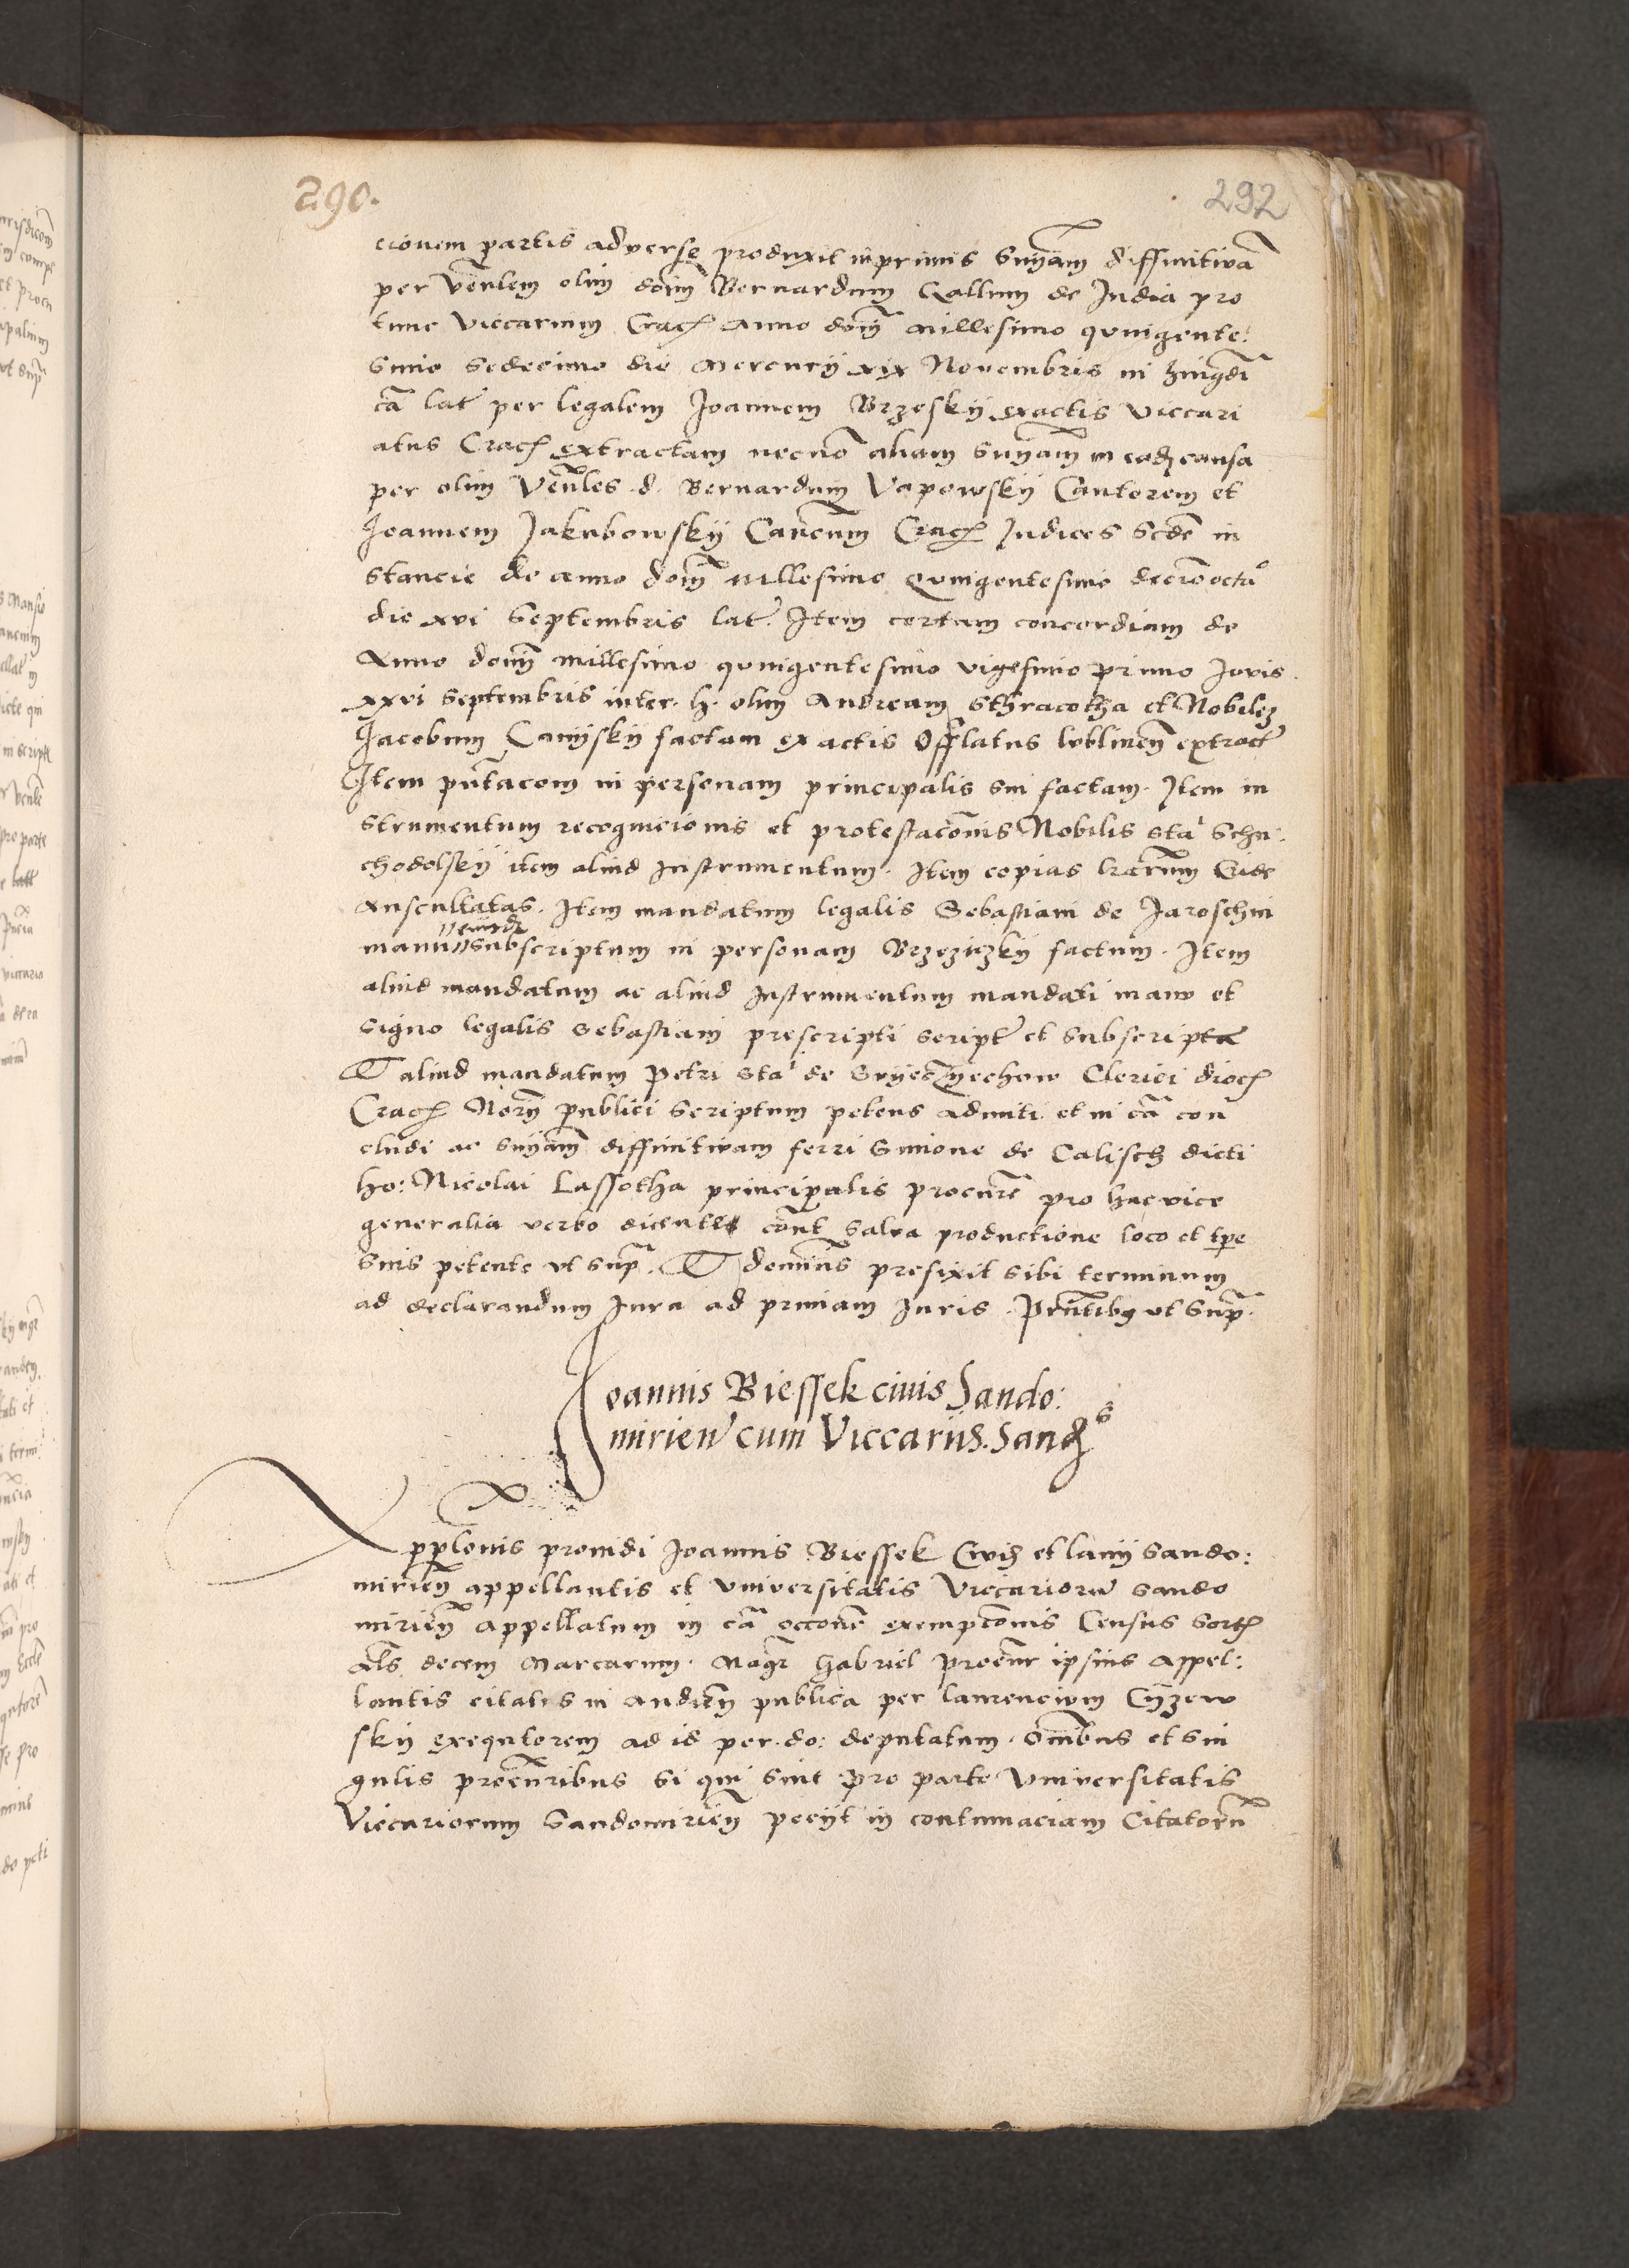 290.
292
cionem partis adverse produxit inprimis snÿam diffinitiva
per venlem olim donm Bernardum Gallum de Jndia pro
tunc Viccarium Crac Anno donÿ Millesimo qvingente:
simo sedecimo die Mercurÿ xix Novembris in hmgdi
ca lat per legalem Joannem Brzeskÿ exactis Viccari
atus Crac extractam necno aliam snÿam in eadz causa
per olim venles d. Bernardum Vapowskÿ Cantorem et
Joannem Jakubowskÿ Canonm Crac Judices scde in
stancie de anno donm Millesimo Qvingentesimo decimooctavo
die xvi Septembris lat. Item certam concordiam de
Anno donÿ Millesimo qvingentesimo vigesimo primo Jovis
xxvi Septembris inter. h. olim Andream Sthracotha et Nobilez
Jacobum Camÿskÿ factam ex actis Offlatus lvblinen extract
Item pntacom in personam principalis sui factam. Item in
strumentum recognicionis et protestaconis Nobilis Sta Schu:
chodolskÿ item aliud Instrumentum. Item copias lrarum Eide
Auscultatas. Item mandatum legalis Sebastiani de Jaroschin
manu eiusd subscriptum in personam Brzeziczkÿ factum. Item
aliud mandatum ac aliud Instrumentum mandati manv et
signo legalis Sebastiani prescripti script et subscripta
Et aliud mandatum Petri Sta de Svÿeczÿechow Clerici dioc
Crac Norÿ publici scriptum petens admitti et in ca con
cludi ac snÿam diffinitivam ferri Simone de Calisch dicti
ho: Nicolai Lassotha principalis procure pro hacvice
generalia verbo dicente cont salva productione loco et tpe
suis petente vt sup. Et dominus prefixit sibi terminum
ad declarandum Jura ad primam Juris. Pntibq vt sup.
Joannis Biessek civis Sando:
mirien cum Viccariis Sand
Applonis providi Joannis Biessek Civis et lanÿ Sando:
mirien appellantis et Vniversitatis Viccariorum Sando
mirien appellatum in ca occone exempconis Census Sort
als decem Marcarum. Magr Gabriel procur ipsius Appel:
lantis citatis in Audien publica per laurencivm Cÿzew
skÿ exequtorem ad id per do: deputatum. Omnibus et sin
gulis procuribus si qui sint pro parte Vniversitatis
Viccariorum Sandomirien peciit in contumaciam Citatorum